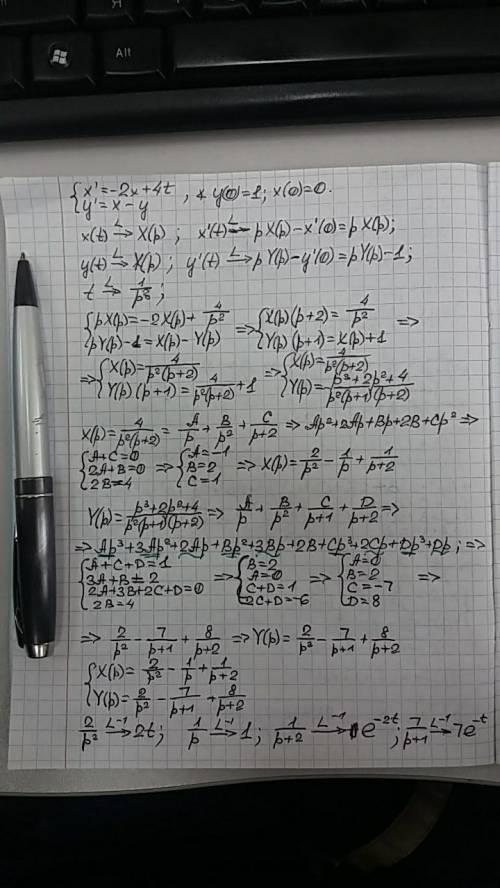 Alt
{x'=-2x+4t
{y'=x-y , y(0)=1; x(0)=0.
x(t) →ᴸ X(p); x'(t) →ᴸ pX(p)-x'(0)=pX(p);
y(t) →ᴸ Y(p); y'(t) →ᴸ pY(p)-y'(0)=pY(p)-1;
t →ᴸ 1/p²;
{pX(p)=-2X(p)+4/p² => {X(p)(p+2)=4/p² =>
{pY(p)-1=X(p)-Y(p) {Y(p)(p+1)=X(p)+1
=> {X(p)=4/(p²(p+2)) => {X(p)=4/(p²(p+2))
{Y(p)(p+1)=4/(p²(p+2))+1 {Y(p)=(p³+2p²+4)/(p²(p+1)(p+2))
X(p)=4/(p²(p+2))=A/p+B/p²+C/(p+2) => Ap²+2Ap+Bp+2B+Cp² =>
{A+C=0 {A=-1
{2A+B=0 => {B=2 => X(p)=2/p²-1/p+1/(p+2)
{2B=4 {C=1
Y(p)=(p³+2p²+4)/(p²(p+1)(p+2)) => A/p+B/p²+C/(p+1)+D/(p+2) =>
=> Ap³+3Ap²+2Ap+Bp²+3Bp+2B+Cp³+2Cp+Dp³+Dp; =>
{A+C+D=1 {B=2 {A=0
{3A+B=2 => {A=0 => {B=2 =>
{2A+3B+2C+D=0 {C+D=1 {C=-7
{2B=4 {2C+D=-6 {D=8
=> 2/p²-7/(p+1)+8/(p+2) => Y(p)=2/p²-7/(p+1)+8/(p+2)
{X(p)=2/p²-1/p+1/(p+2)
{Y(p)=2/p²-7/(p+1)+8/(p+2)
2/p² →ᴸ⁻¹ 2t; 1/p →ᴸ⁻¹ 1; 1/(p+2) →ᴸ⁻¹ e⁻²ᵗ; 7/(p+1) →ᴸ⁻¹ 7e⁻ᵗ